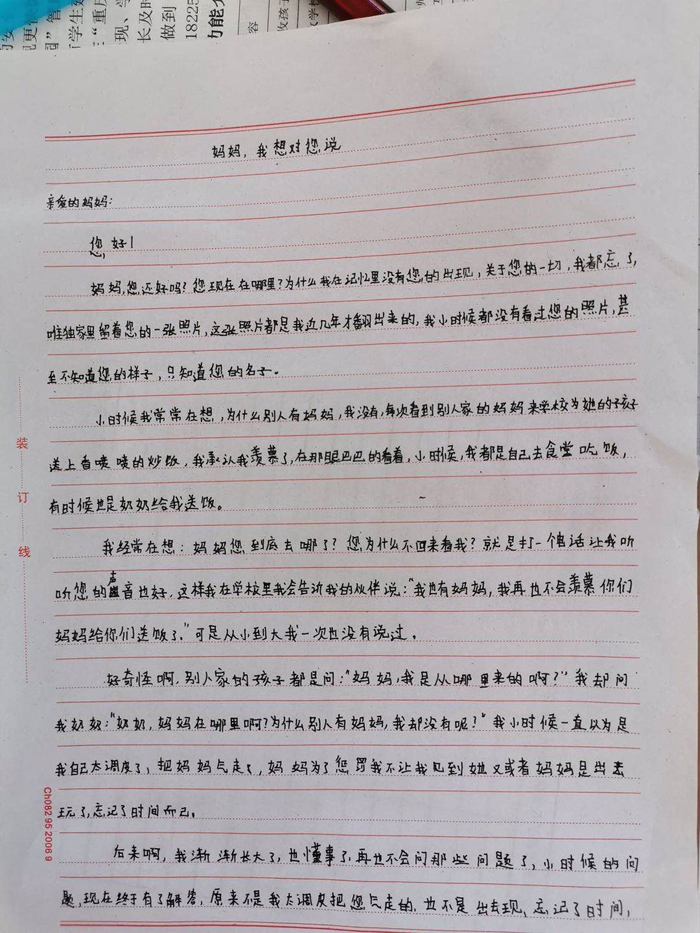 妈妈，我想对您说
亲爱的妈妈：
您好！
妈妈,您还好吗？您现在在哪里？为什么我在记忆里没有您的出现，关于您的一切，我都忘了，
唯独家里留着您的一张照片，这张照片都是我近几年才翻出来的，我小时候都没有看过您的照片，甚
至不知道您的样子，只知道您的名子。
小时候我常常在想，为什么别人有妈妈，我没有，每次看到别人家的妈妈来学校为她的子孩子
送上香喷喷的炒饭，我承认我羡慕了，在那眼巴巴的看着，小时候，我都是自己去食堂吃饭，
有时候也是奶奶给我送饭。
我经常在想：妈妈您到底去哪了？您为什么不回来看我？就是打一个电话让我听
听您的声音也好，这样我在学校里我会告诉我的伙伴说：“我也有妈妈，我再也不会羡慕你们
妈妈给你们送饭了。”可是从小到大我一次也没有说过。
好奇怪啊，别人家的孩子都是问：“妈妈，我是从哪里来的啊？”我却问
我奶奶：“奶奶，妈妈在哪里啊？为什么别人有妈妈，我却没有呢？”我小时候一直以为是
我自己太调皮了，把妈妈气走了，妈妈为了惩罚我不让我见到她又或者妈妈是出去
玩了，忘记了时间而已。
后来啊，我渐渐长大了，也懂事了，再也不会问那些问题了，小时候的问
题，现在终于有了解答，原来不是我太调皮把您气走的，也不是出去现，忘记了时间，
装
订
线
Ch082 95 2006 9
18225